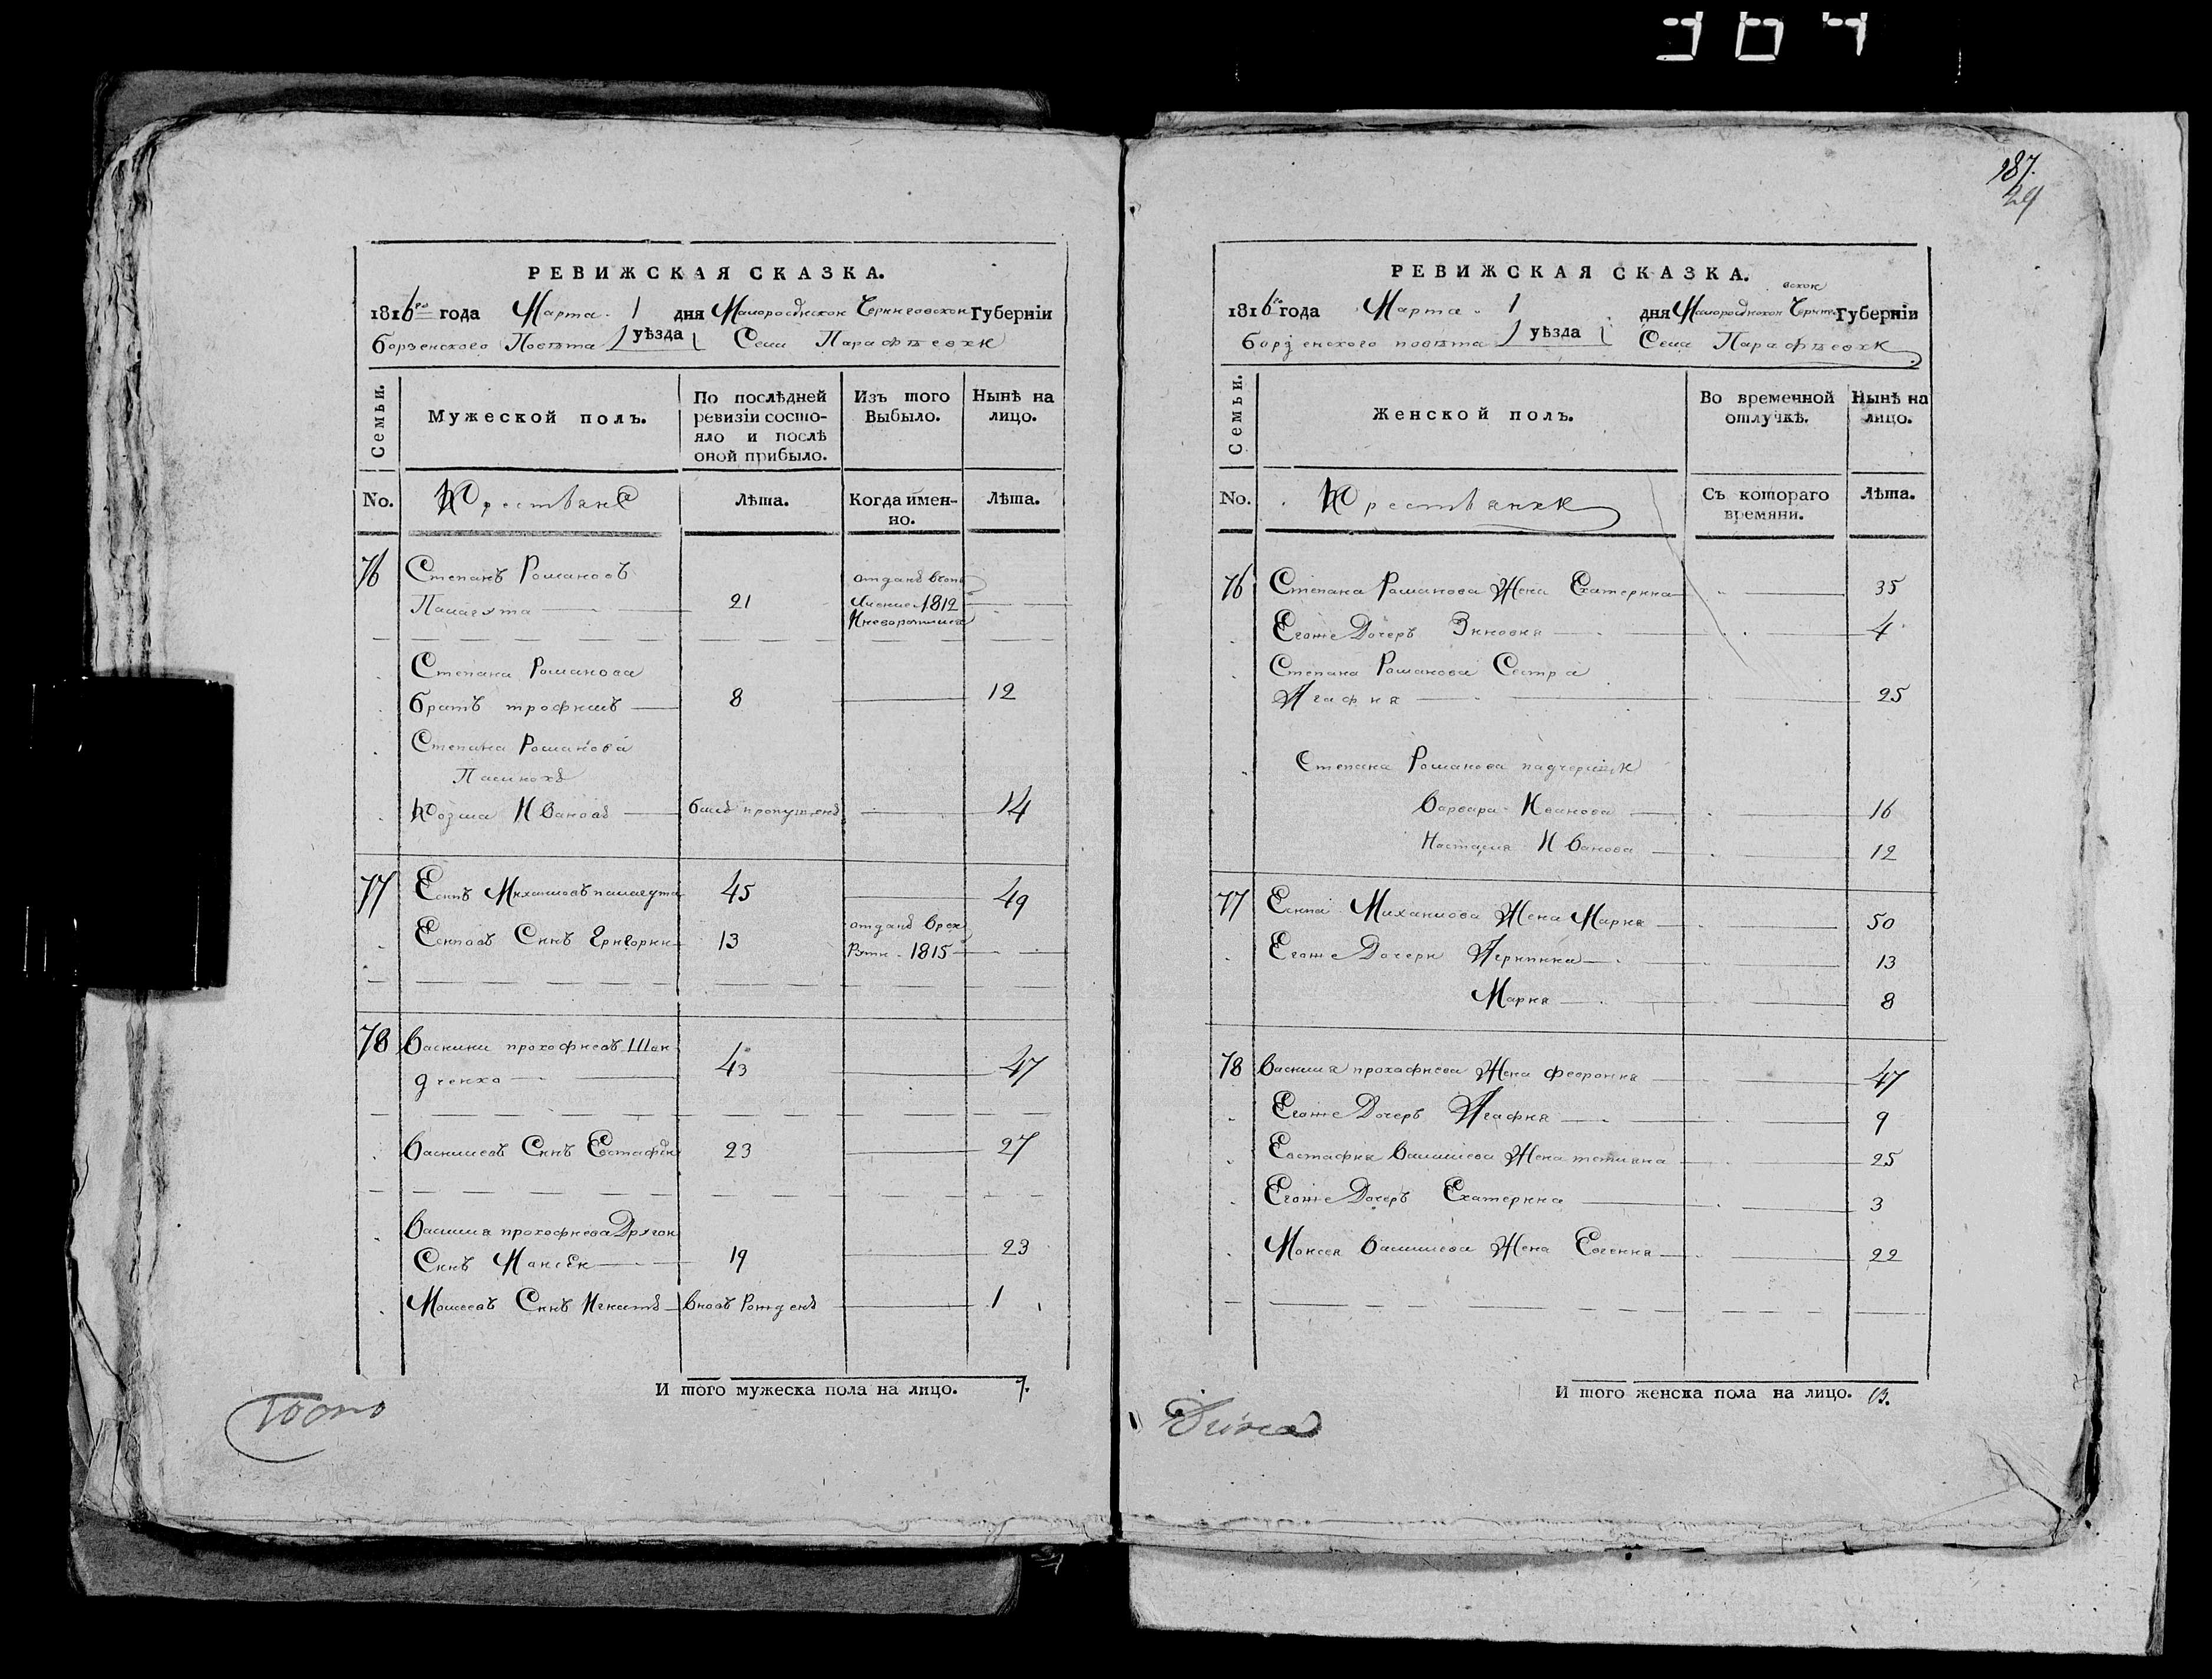 187.
24
РЕВИЖСКАЯ СКАЗКА.
1816го года Марта 1 дня Малоросійской Черниговской Губерніи
борзенского Повѣта уѣзда Села Парафѣевки
Семьи.
Мужеской полъ.
По послѣдней ревизіи состо-
яло и послѣ
оной прибыло.
Изъ того
Выбыло.
Нынѣ на
лицо.
No.
Крестьяне
Лѣта.
Когда имен-
но.
Лѣта.
76 Степанъ Романовъ отданъ
Палагута 21 1812
Степана Романова
братъ трофимъ 8 12
Степана Романова
Пасинокъ
Козма Ивановъ былъ пропущенъ 14
77 Есипъ Михаиловъ палагута 45 49
Есиповъ Синъ Григорий 13 отданъ врек
рути 1815
78 василий прокофиевъ Шек
дченко 43 47
василиевъ Синъ Евстафий 23 27
василия прокофиева Другой
Синъ Мойсей 19 23
Моисеевъ Синъ Игнатъ вновь Рожденъ 1
И того мужеска пола на лицо. 7.
РЕВИЖСКАЯ СКАЗКА.
1816го года Марта 1 дня Малоросійской Чернигов
ской Губерніи
борзенского повѣта уѣзда Села Парафѣевки
Семьи.
Женской полъ.
Во временной
отлучкѣ.
Нынѣ на
лицо.
No.
Крестьянки
Съ котораго
времяни.
Лѣта.
76 Степана Романова Жена Екатерина 35
Егоже Дочеръ Зиновия 4
Степана Романова Сестра
Агафия 25
Степана Романова падчерицы
варвара Иванова 16
Настасия Иванова 12
77 Есипа Михаилова Жена Мария 50
Егоже Дочери 13
Мария 8
78 василия прокофиева Жена феврония 47
Егоже Дочеръ Агафия 9
Евстафия василиева Жена тетияна 25
Егоже Дочеръ Екатерина 3
Моисея василиева Жена Евгения 22
И того женска пола на лицо. 13.